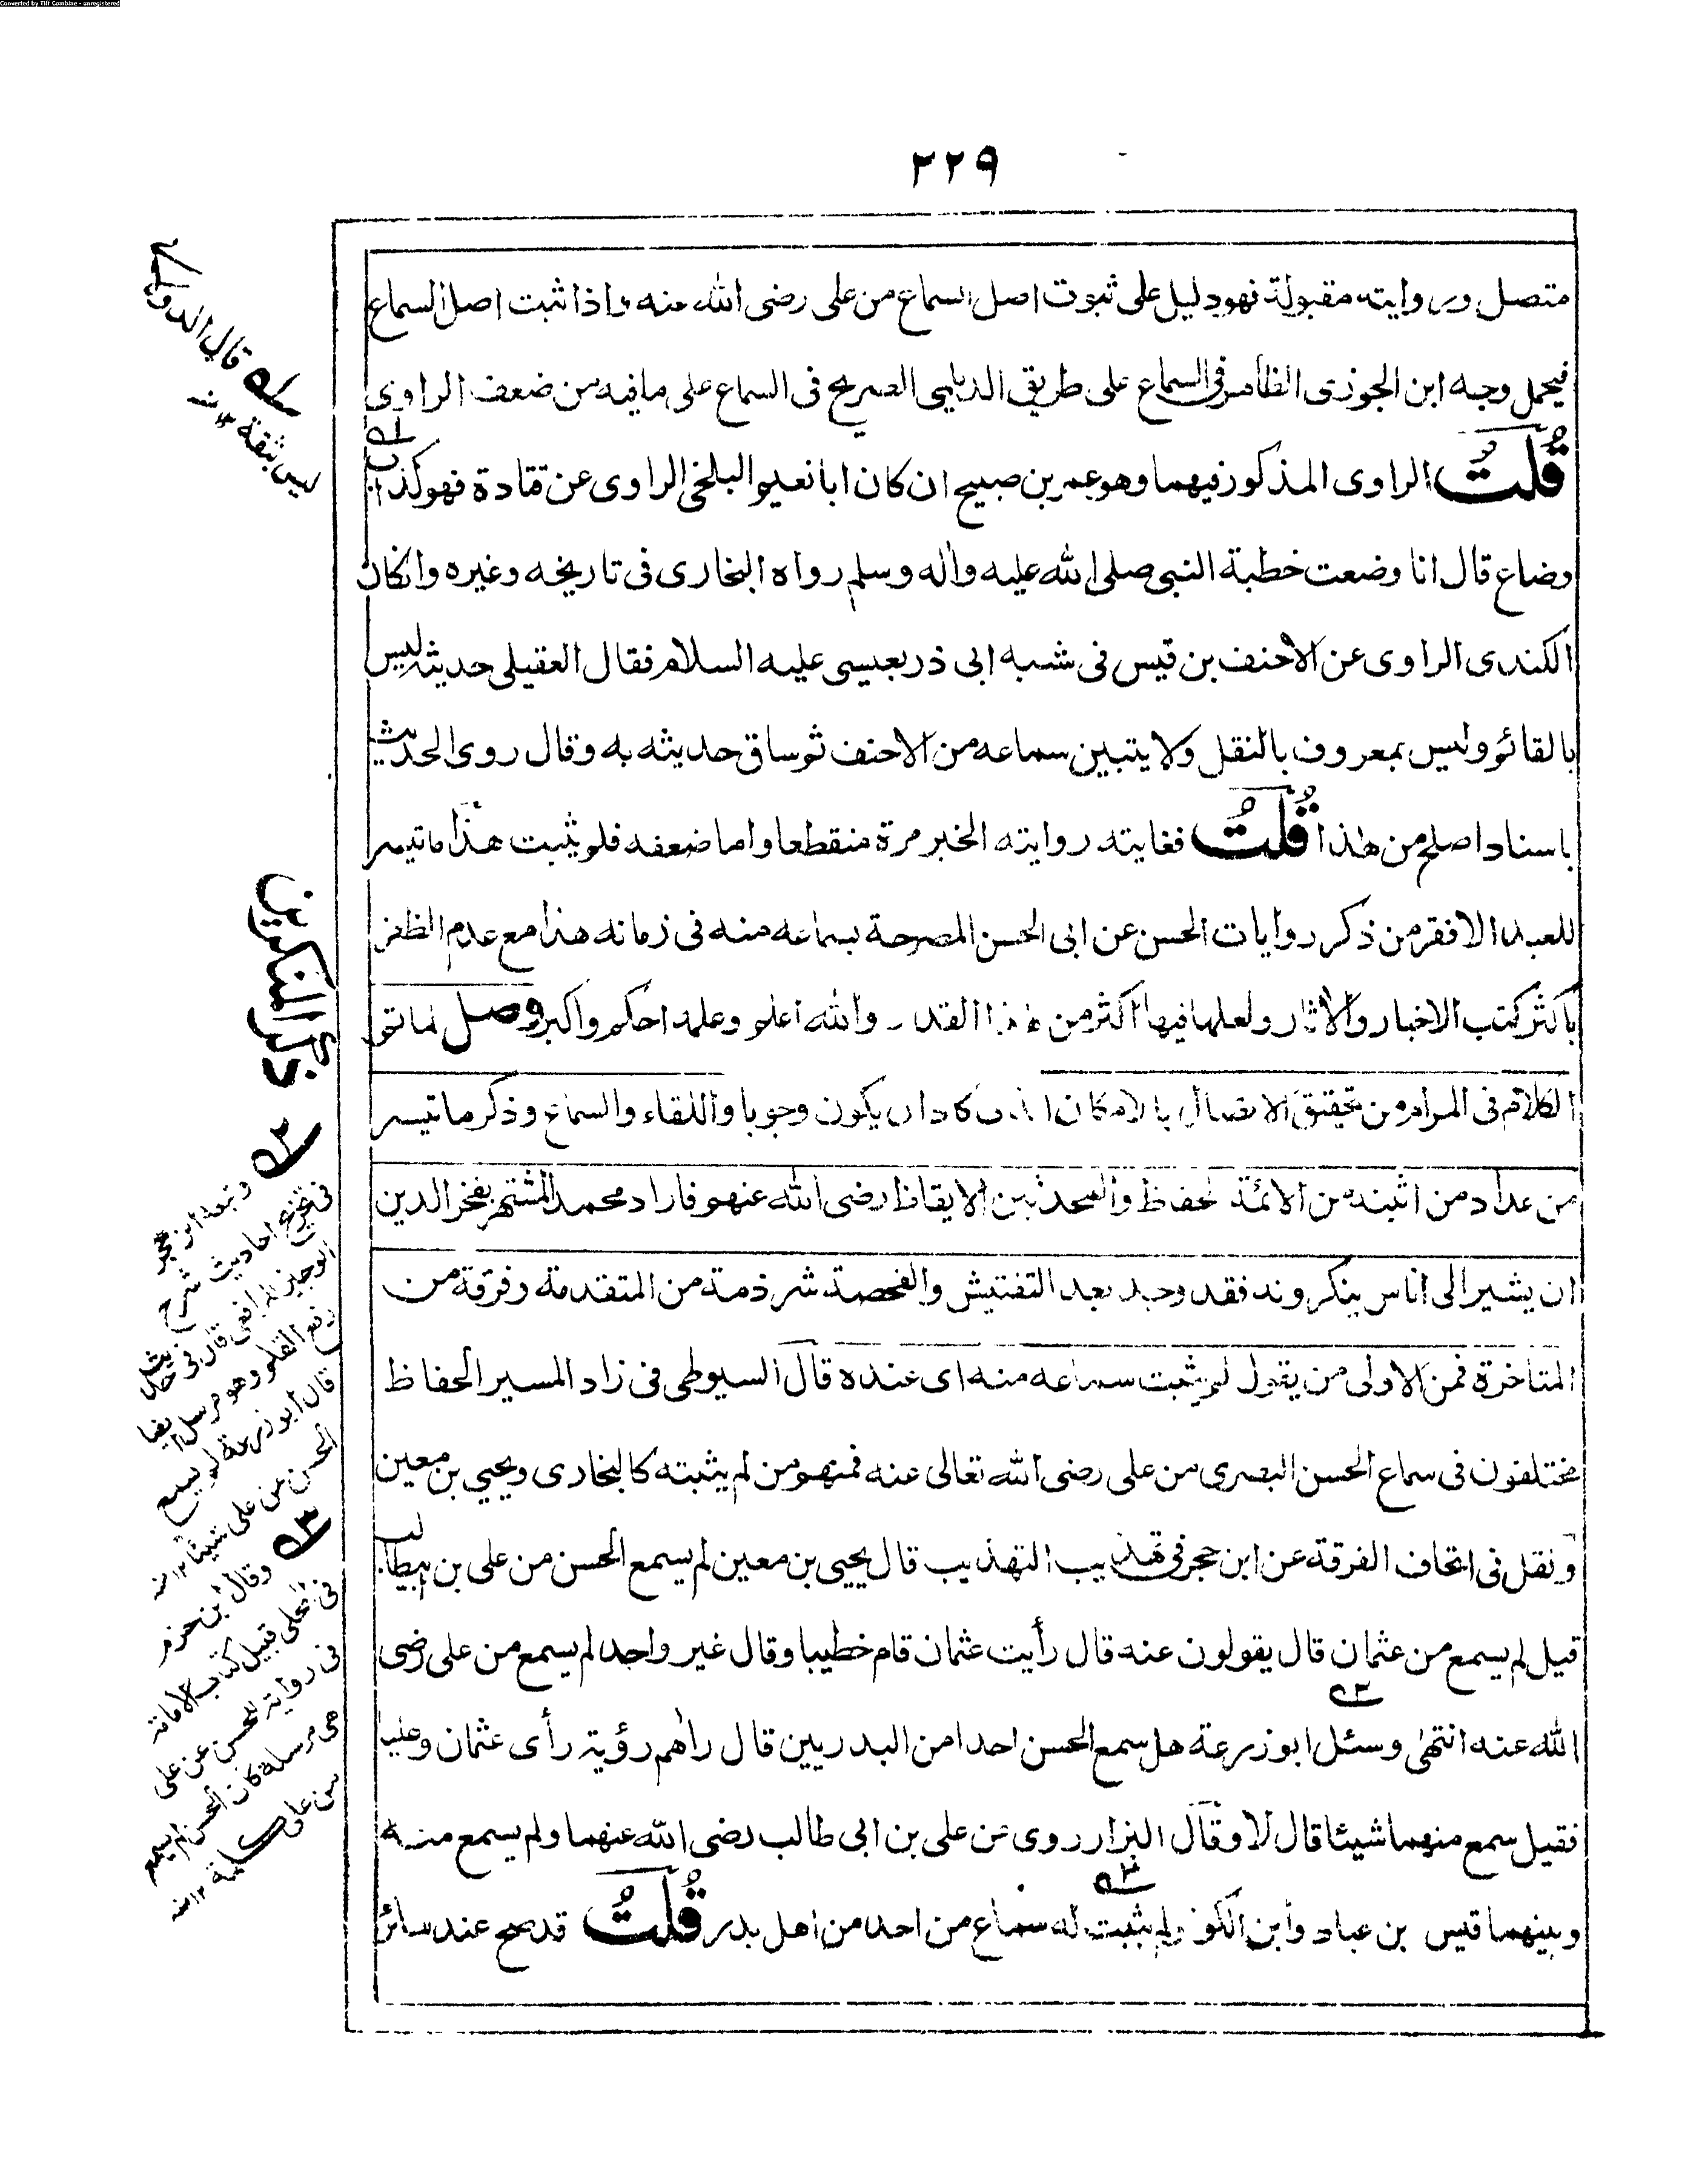 Converted by Tiff Combine - unregistered
٢٢٩
متصل وروايته مقبولة فهو دليل على ثبوت اصل السماع من على رضى الله عنه واذا ثبت اصل السماع
فيحمل وجه ابن الجوزى الظاهر فى السماع على طريق الديلمى الصريح فى السماع على ما فيه من ضعف الراوى
قُلتُ الراوى المذكور فيهما وهو عمر بن صبيح ان كان ابا نعيم البلخى الراوى عن قتادة فهو كذاب
وضاع قال انا وضعت خطبة النبى صلى الله عليه واله وسلم رواه البخارى فى تاريخه وغيره وانكان
الكندى الراوى عن الاحنف بن قيس فى شبه ابى ذر بعيسى عليه السلام فقال العقيلى حديثه ليس
بالقائم وليس بمعروف بالنقل ولا يتبين سماعه من الاحنف ثم ساق حديثه به وقال روى الحديث
باسناد اصلح من هذا قُلتُ فغايته روايته الخبر مرة منقطعا واما ضعفه فلم يثبت هذا ما تيسر
للعبد الافقر من ذكر روايات الحسن عن ابى الحسن المصرحة بسماعه منه فى زمانه هذا مع عدم الظفر
باكثر كتب الاخبار والاثار ولعلها فيها اكثر من هذا القدر والله اعلم وعلمه احكم واكبر وصل لما تم
الكلام فى المرام من تحقيق الاتصال بالامكان كاد ان يكون وجوبا واللقاء والسماع وذكر ما تيسر
من عداد من اثبته من الائمة الحفاظ والمحدثين الايقاظ رضى الله عنهم فاراد محمد المشتهر بفخر الدين
ان يشير الى اناس ينكرونه فقد وجد بعد التفتيش والفحصة شرذمة من المتقدمة وفرقة من
المتاخرة فمن الاولى من يقول لم يثبت سماعه منه اى عنده قال السيوطى فى زاد المسير الحفاظ
مختلفون فى سماع الحسن البصرى من على رضى الله تعالى عنه فمنهم من لم يثبته كالبخارى ويحيى بن معين
ونقل فى اتحاف الفرقة عن ابن حجر فى تهذيب التهذيب قال يحيى بن معين لم يسمع الحسن من على بن ابيطالب
قيل لم يسمع من عثمان قال يقولون عنه قال رأيت عثمان قام خطيبا وقال غير واحد لم يسمع من على رضى
الله عنه انتهى وسئل ابو زرعة هل سمع الحسن احدا من البدريين قال راهم رؤية رأى عثمان وعليا
فقيل سمع منهما شيئا قال لا وقال البزار روى عن على بن ابى طالب رضى الله عنهما ولم يسمع منه
وبينهما قيس بن عباد وابن الكوا ولم يثبت له سماع من احد من اهل بدر قُلتُ قد صح عند سائر
له قال الدولے
ليس بثقة ١٢ منه
ذكر المنكرين
٢ه وتبعه ابن حجر
فى تخريج احاديث شرح
الوجيز للرافعى قال فى حديث
رفع القلم وهو مرسل ايضا
قال ابو زرعة لم يسمع
الحسن عن على شيئا ١٢ منه
٣ه وقال بن حزم
فى المحلى قبيل كتاب الامانة
فى رواية الحسن عن على
هى مرسلة كان الحسن لم يسمع
من على كلمة ١٢ منه